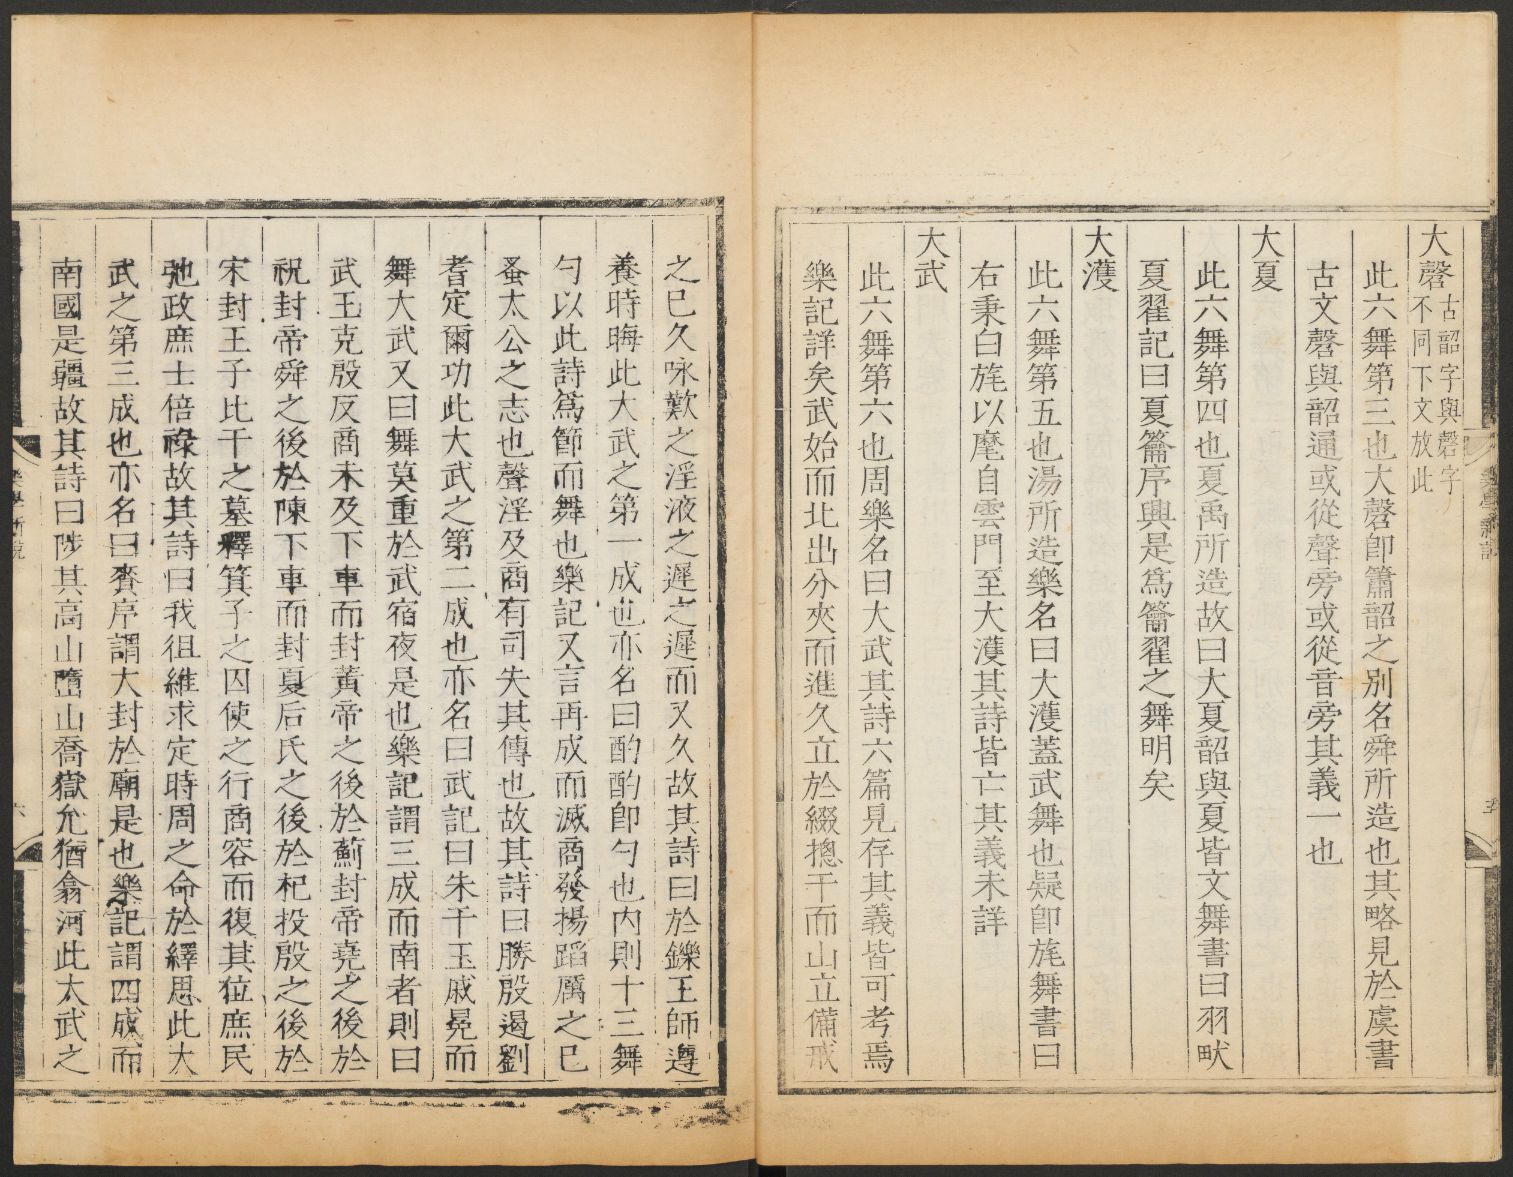 大磬古韶字與磬字不同下文放此
此六舞第三也大磬卽簫韶之别名舜所造也其略見於虞書
古文磬與韶通或從聲旁或從音旁其義一也
大夏
此六舞第四也夏禹所造故曰大夏韶與夏皆文舞書曰羽畎
夏翟記曰夏籥序興是爲籥翟之舞明矣
大濩
此六舞第五也湯所造樂名曰大濩蓋武舞也疑卽旄舞書曰
右秉白旄以麾自雲門至大濩其詩皆亡其義未詳
大武
此六舞第六也周樂名曰大武其詩六篇見存其義皆可考焉
樂記詳矣武始而北出分夾而進久立於綴摠干而山立備戒
之已久咏歎之淫液之遲之遲而又久故其詩曰於鑠王師遵
養時晦此大武之第一成也亦名曰酌酌卽勺也内則十三舞
勺以此詩爲節而舞也樂記又言再成而滅商發揚蹈厲之已
蚤太公之志也聲淫及商有司失其傳也故其詩曰勝殷遏劉
耆定爾功此大武之第二成也亦名曰武記曰朱干玉戚冕而
舞大武又曰舞莫重於武宿夜是也樂記謂三成而南者則曰
武王克殷反商未及下車而封黃帝之後於薊封帝堯之後於
祝封帝舜之後於陳下車而封夏后氏之後於杞投殷之後於
宋封王子比干之墓釋箕子之囚使之行商容而復其位庶民
弛政庶士倍祿故其詩曰我徂維求定時周之命於繹思此大
武之第三成也亦名曰賚序謂大封於廟是也樂記謂四成而
南國是疆故其詩曰陟其高山墮山喬嶽允猶翕河此大武之